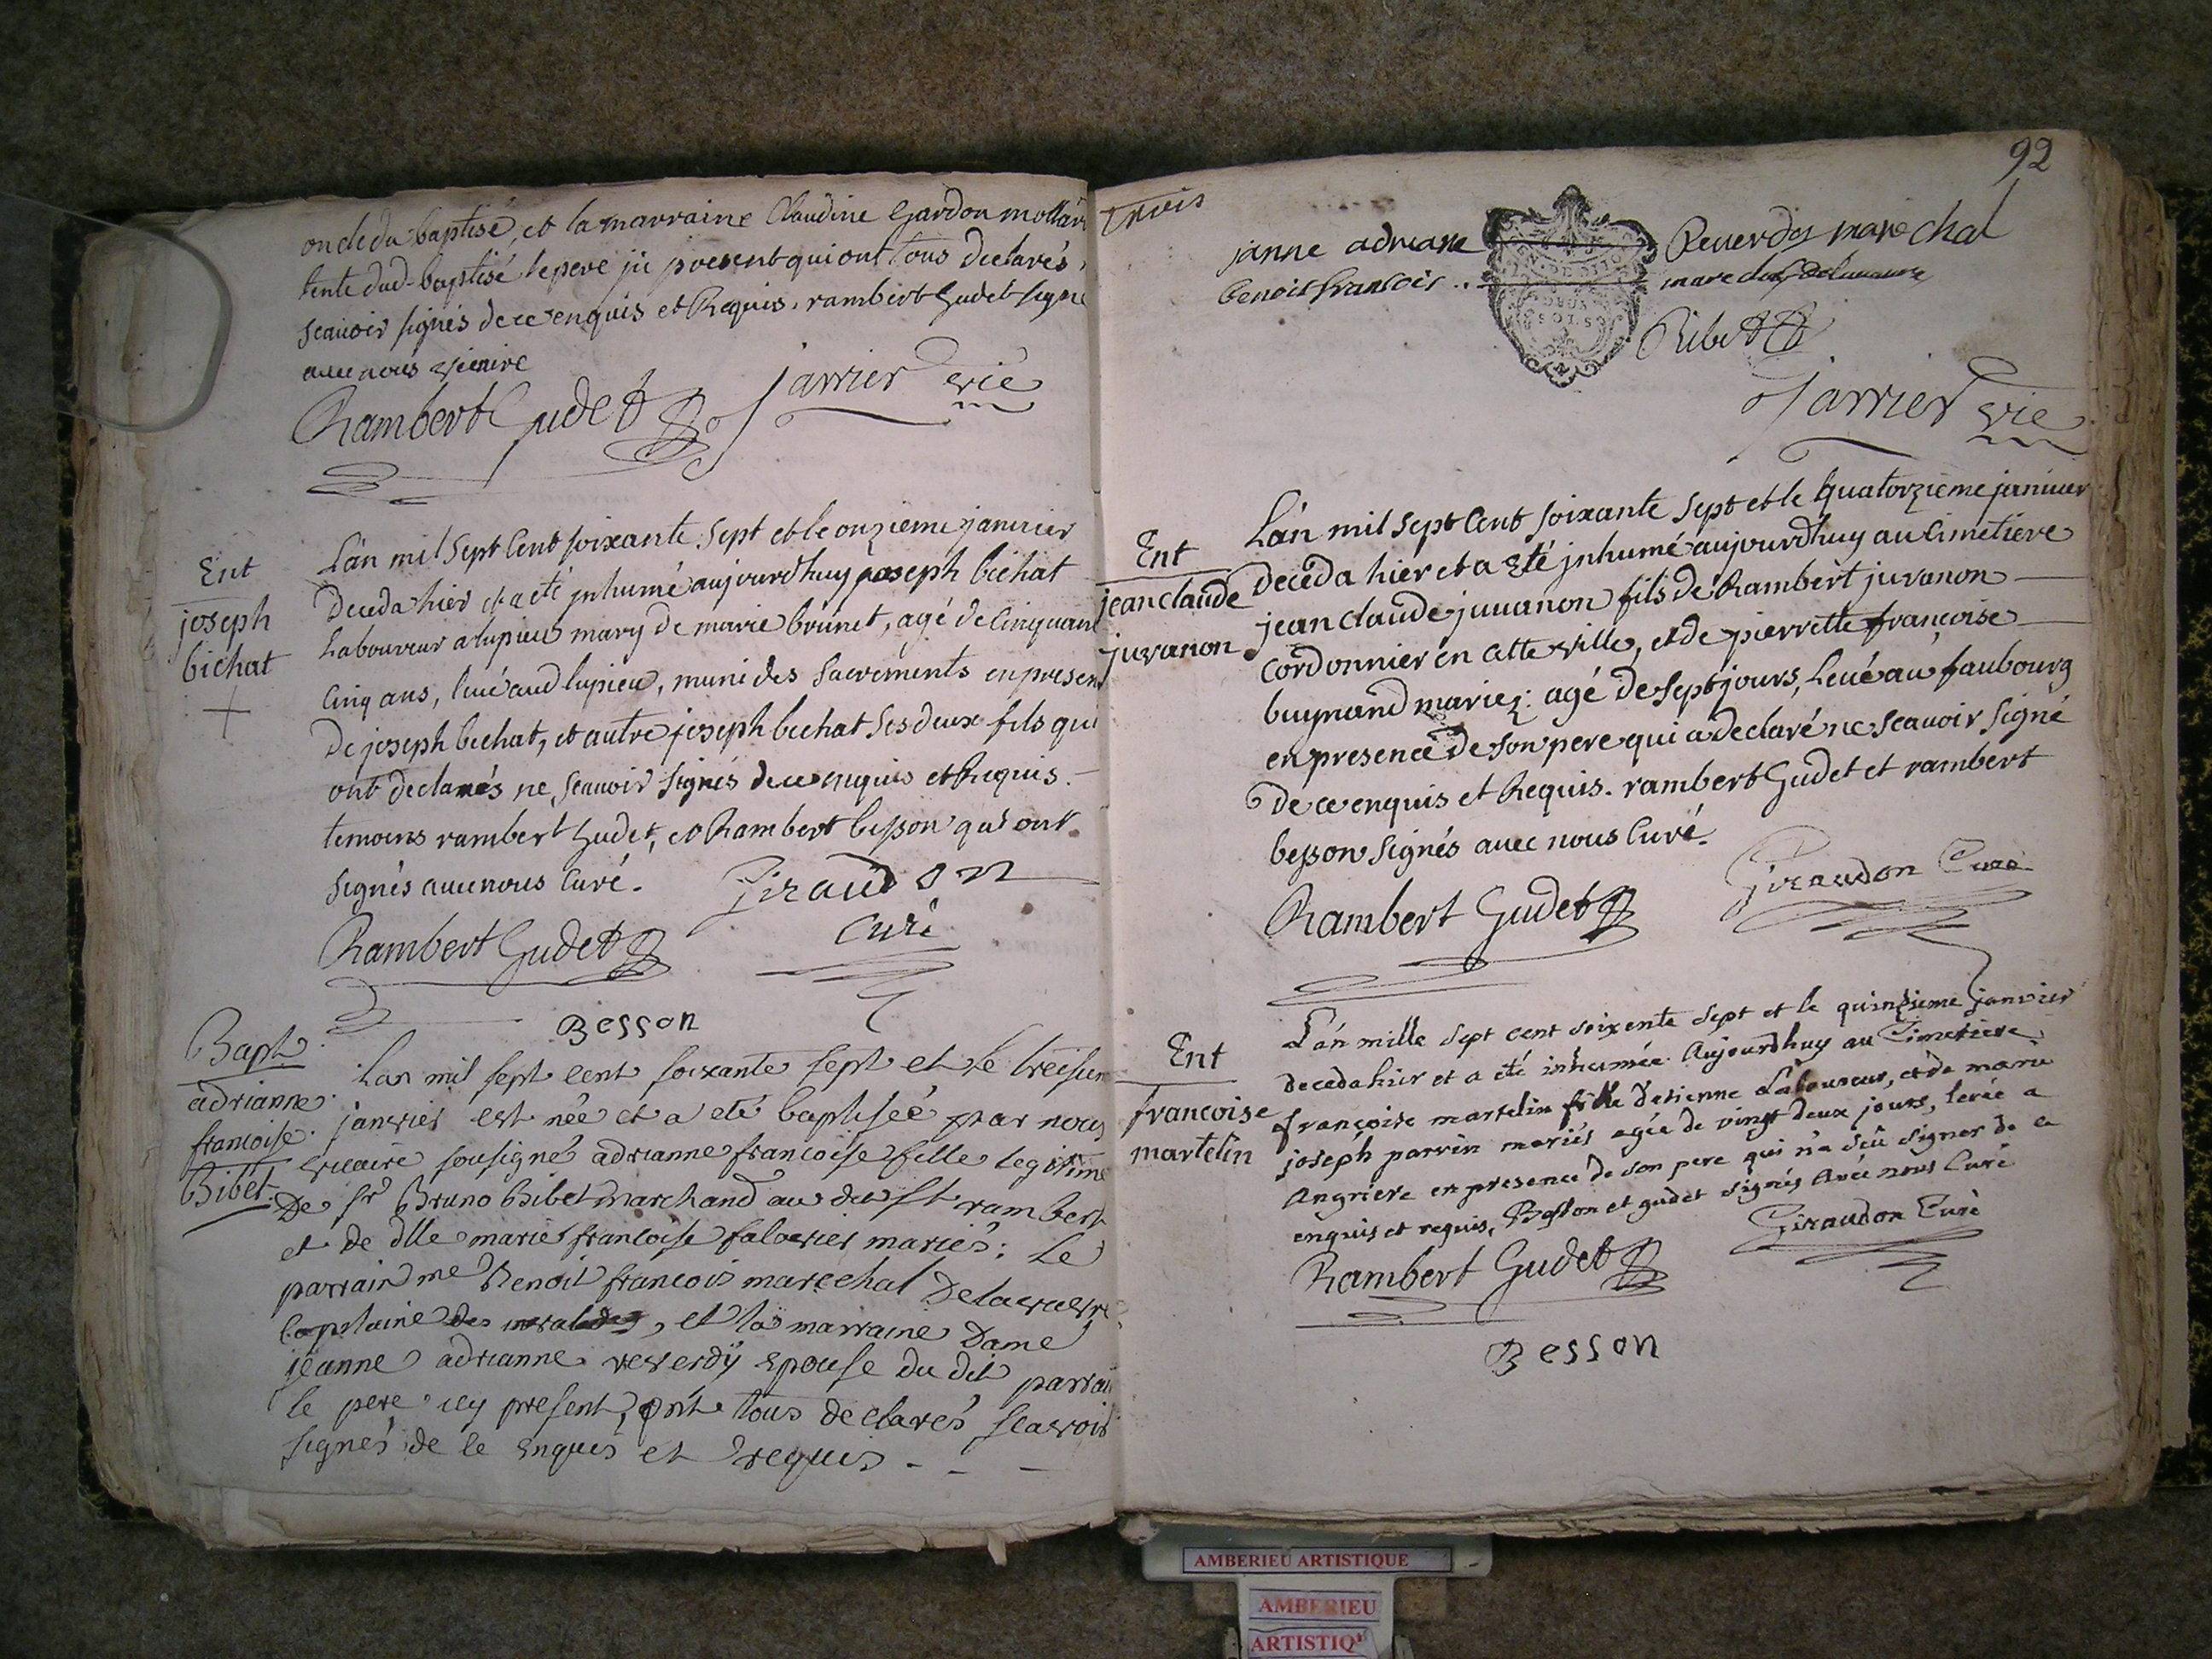 oncle du baptisé, et la marraine Claudine Gardon mottar
tente dud. baptisé le pere ji present qui ont tous declarés
scauoir signés de ce enquis et Requis. rambert Gudet signé
auec nous vicaire
Rambert Gudet Jarrier vic
Ent
joseph
bichat
L'an mil sept Cent soixante sept et le onzieme janvier
deceda hier et a eté jnhumé aujourdhuy joseph bichat
Laboureur a lupieu mary de marie brunet, agé de Cinquante
Cinq ans, leué aud lupieu, muni des sacrements en presen
de joseph bichat, et autre joseph bichat ses deux fils qui
ont declarés ne scauoir signés de ce enquis et Requis.
temoins rambert Gudet, et Rambert besson qui ont
signés auec nous Curé.
Giraudon
Curé
Rambert Gudet
Besson
Bapt.
adrianne
francoise
Bibet.
Lan mil sept cent soixante sept et le treisiem
janvier est née et a eté baptiseé par nous
vicaire sousigné adrianne francoise fille legitime
De sr Bruno Bibet marchand au du st rambert
et de dlle marie francoise falavier mariés: Le
parrain me Benoit francois marechal Delavavre
Capitaine des invalides, et la marraine Dame
jeanne adrianne reverdÿ epouse du dit parrai
le pere icy present, ont tous declarés scavoir
signés de ce enquis et requis - - -
trois
92
janne adriane Reuerdy marechal
benoit francois .. marechal Delauaure
Bibet
Jarrier vic
Ent
jean claude
juvanon
L'an mil sept Cent soixante sept et le quatorzieme januier
deceda hier et a eté jnhumé aujourdhuy au Cimetiere
jean Claude juuanon fils de Rambert juvanon
Cordonnier en cette ville, et de pierrette françoise
buynand mariez: agé de sept jours, Leué au faubourg
en presence de son pere qui a declaré ne scauoir signé
de ce enquis et Requis. rambert Gudet et rambert
besson signés auec nous Curé.
Rambert Gudet Giraudon Curé
Ent
francoise
martelin
L'an mille sept cent soixente sept et le quinzieme janvier
deceda hier et a eté inhumée Aujourdhuy au Cimetiere
françoise martelin fille d'etienne Laboureur, et de marie
joseph parrin mariés agée de vingt deux jours, levée a
Angriere en presence de son pere qui n'a sçû signer de ce
enquis et requis, Besson et gudet signés Avec nous Curé
Giraudon Curé
Rambert Gudet
Besson
AMBERIEU ARTISTIQUE
AMBERIEU
ARTISTIQ